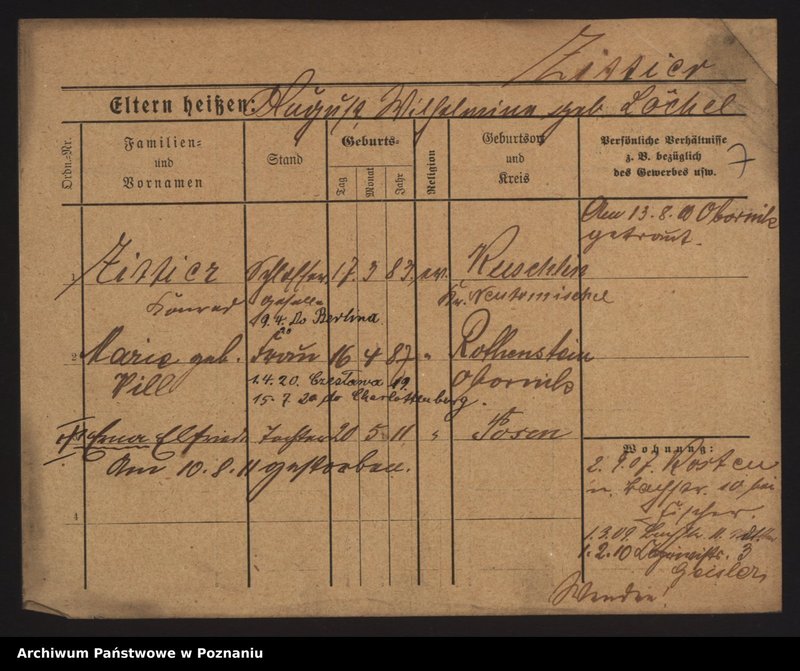 Zittier
Eltern heißen: August, Wilhelmine geb. Löchel
Ordn.-Nr.
Familien- und Vornamen
Stand
Geburts-
Tag
Monat
Jahr
Religion
Geburtsort und Kreis
Persönliche Verhältnisse
z. B. bezüglich
des Gewerbes usw.
7
Am 13.8. Obornik
getraut.
1 Zittier Schlosser 17. 3 83 ev. Kuschlin
Konrad geselle Kr. Neutomischel
9.4. do Berlina
2 Marie geb. Frau 16 4 87 " Rothenstein
Will 1.4.20. Czesława 19. Obornik
15.7.20 do Charlottenburg.
Erna Elfriede Tochter 20 5 11 " Posen
Am 10.8.11 gestorben.
4
Wohnung:
2. 9.07. Kosten
10 bei
Fischer.
1.3.09. 11.
1.2.10 3
Geisler,
Wenden!
Archiwum Państwowe w Poznaniu